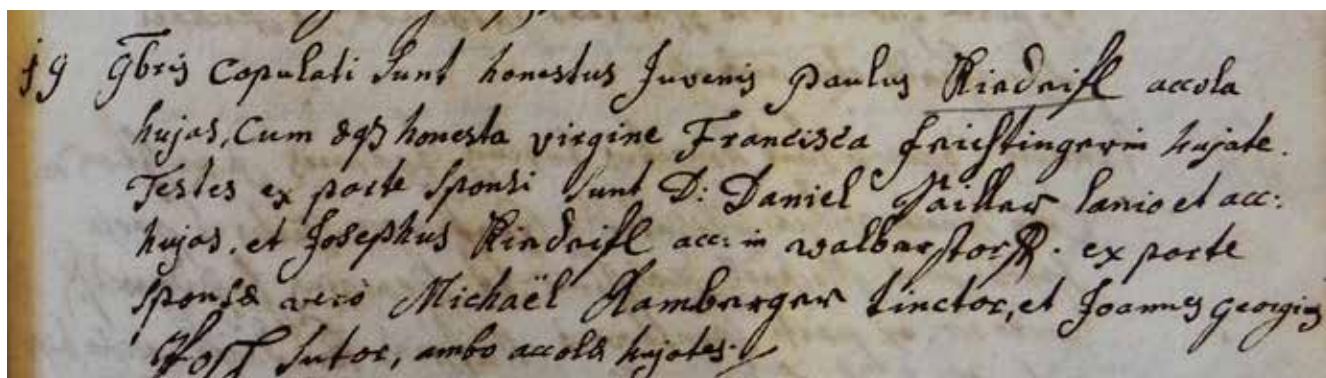 19 9bris Copulati Sunt honestus Juvenis Paulus Riedrifl accola
hujas, Cum aeq3 honesta virgine Francisca feichtingerin hujate.
Testes ex parte Sponsi Sunt D: Daniel lanio et acc:
hujas, et Josephus Riedrifl acc: in walberstorff. ex parte
Sponsæ verò Michaël Hamberger tinctor, et Joannes Georgius
Sutor, ambo accolæ hujates.